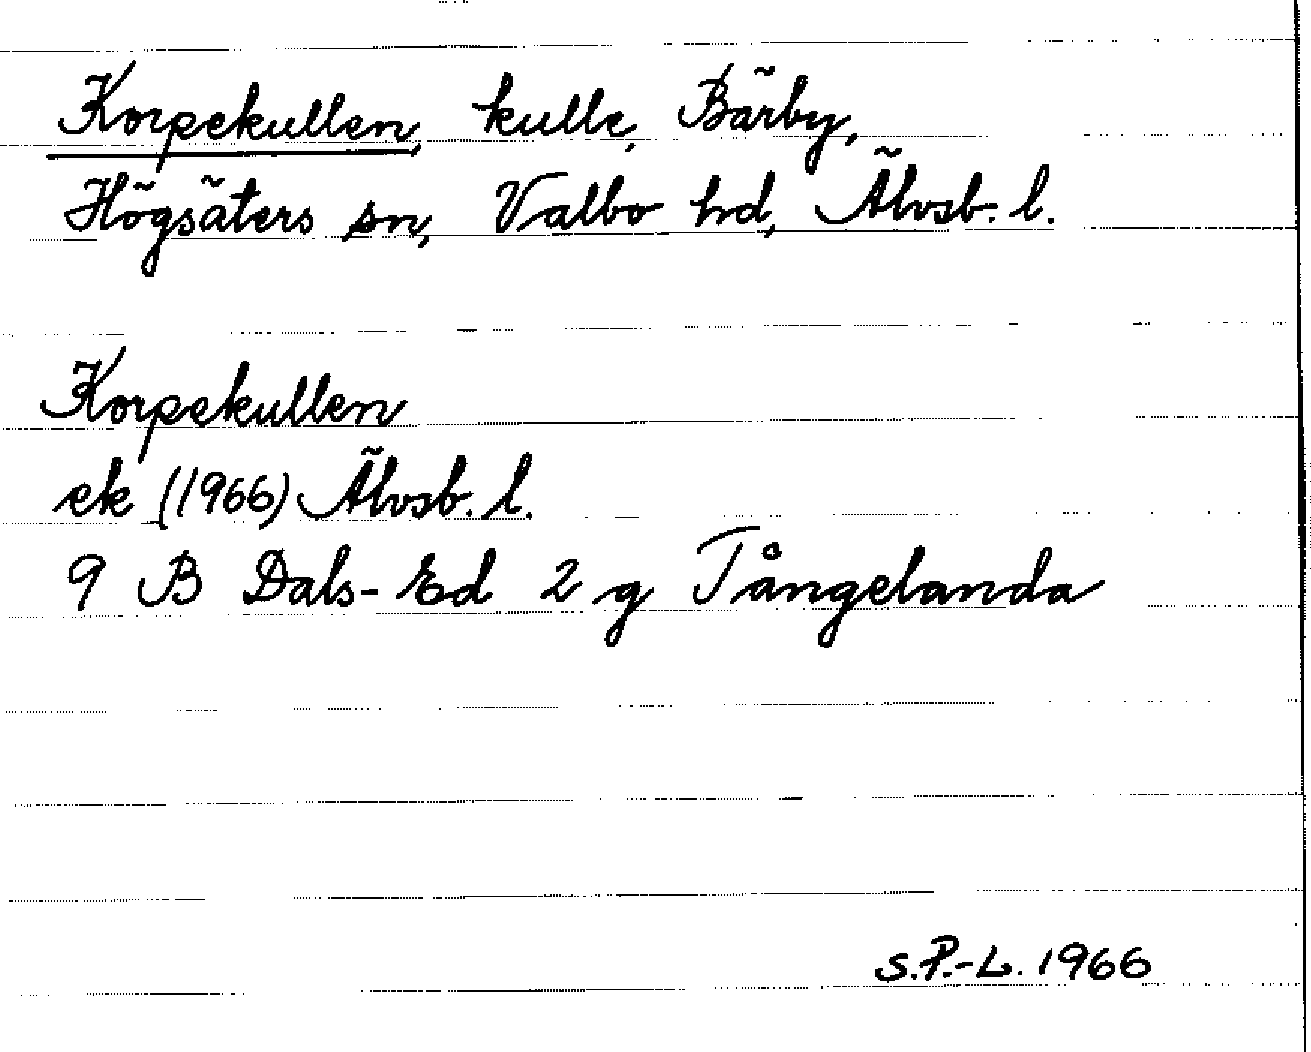 Korpekullen, kulle, Bärby,
Högsäters sn, Valbo hd, Älvsb. l.
Korpekullen
ek (1966) Älvsb. l.
9 B Dals-Ed 2 g Tångelanda
S.P.-L. 1966